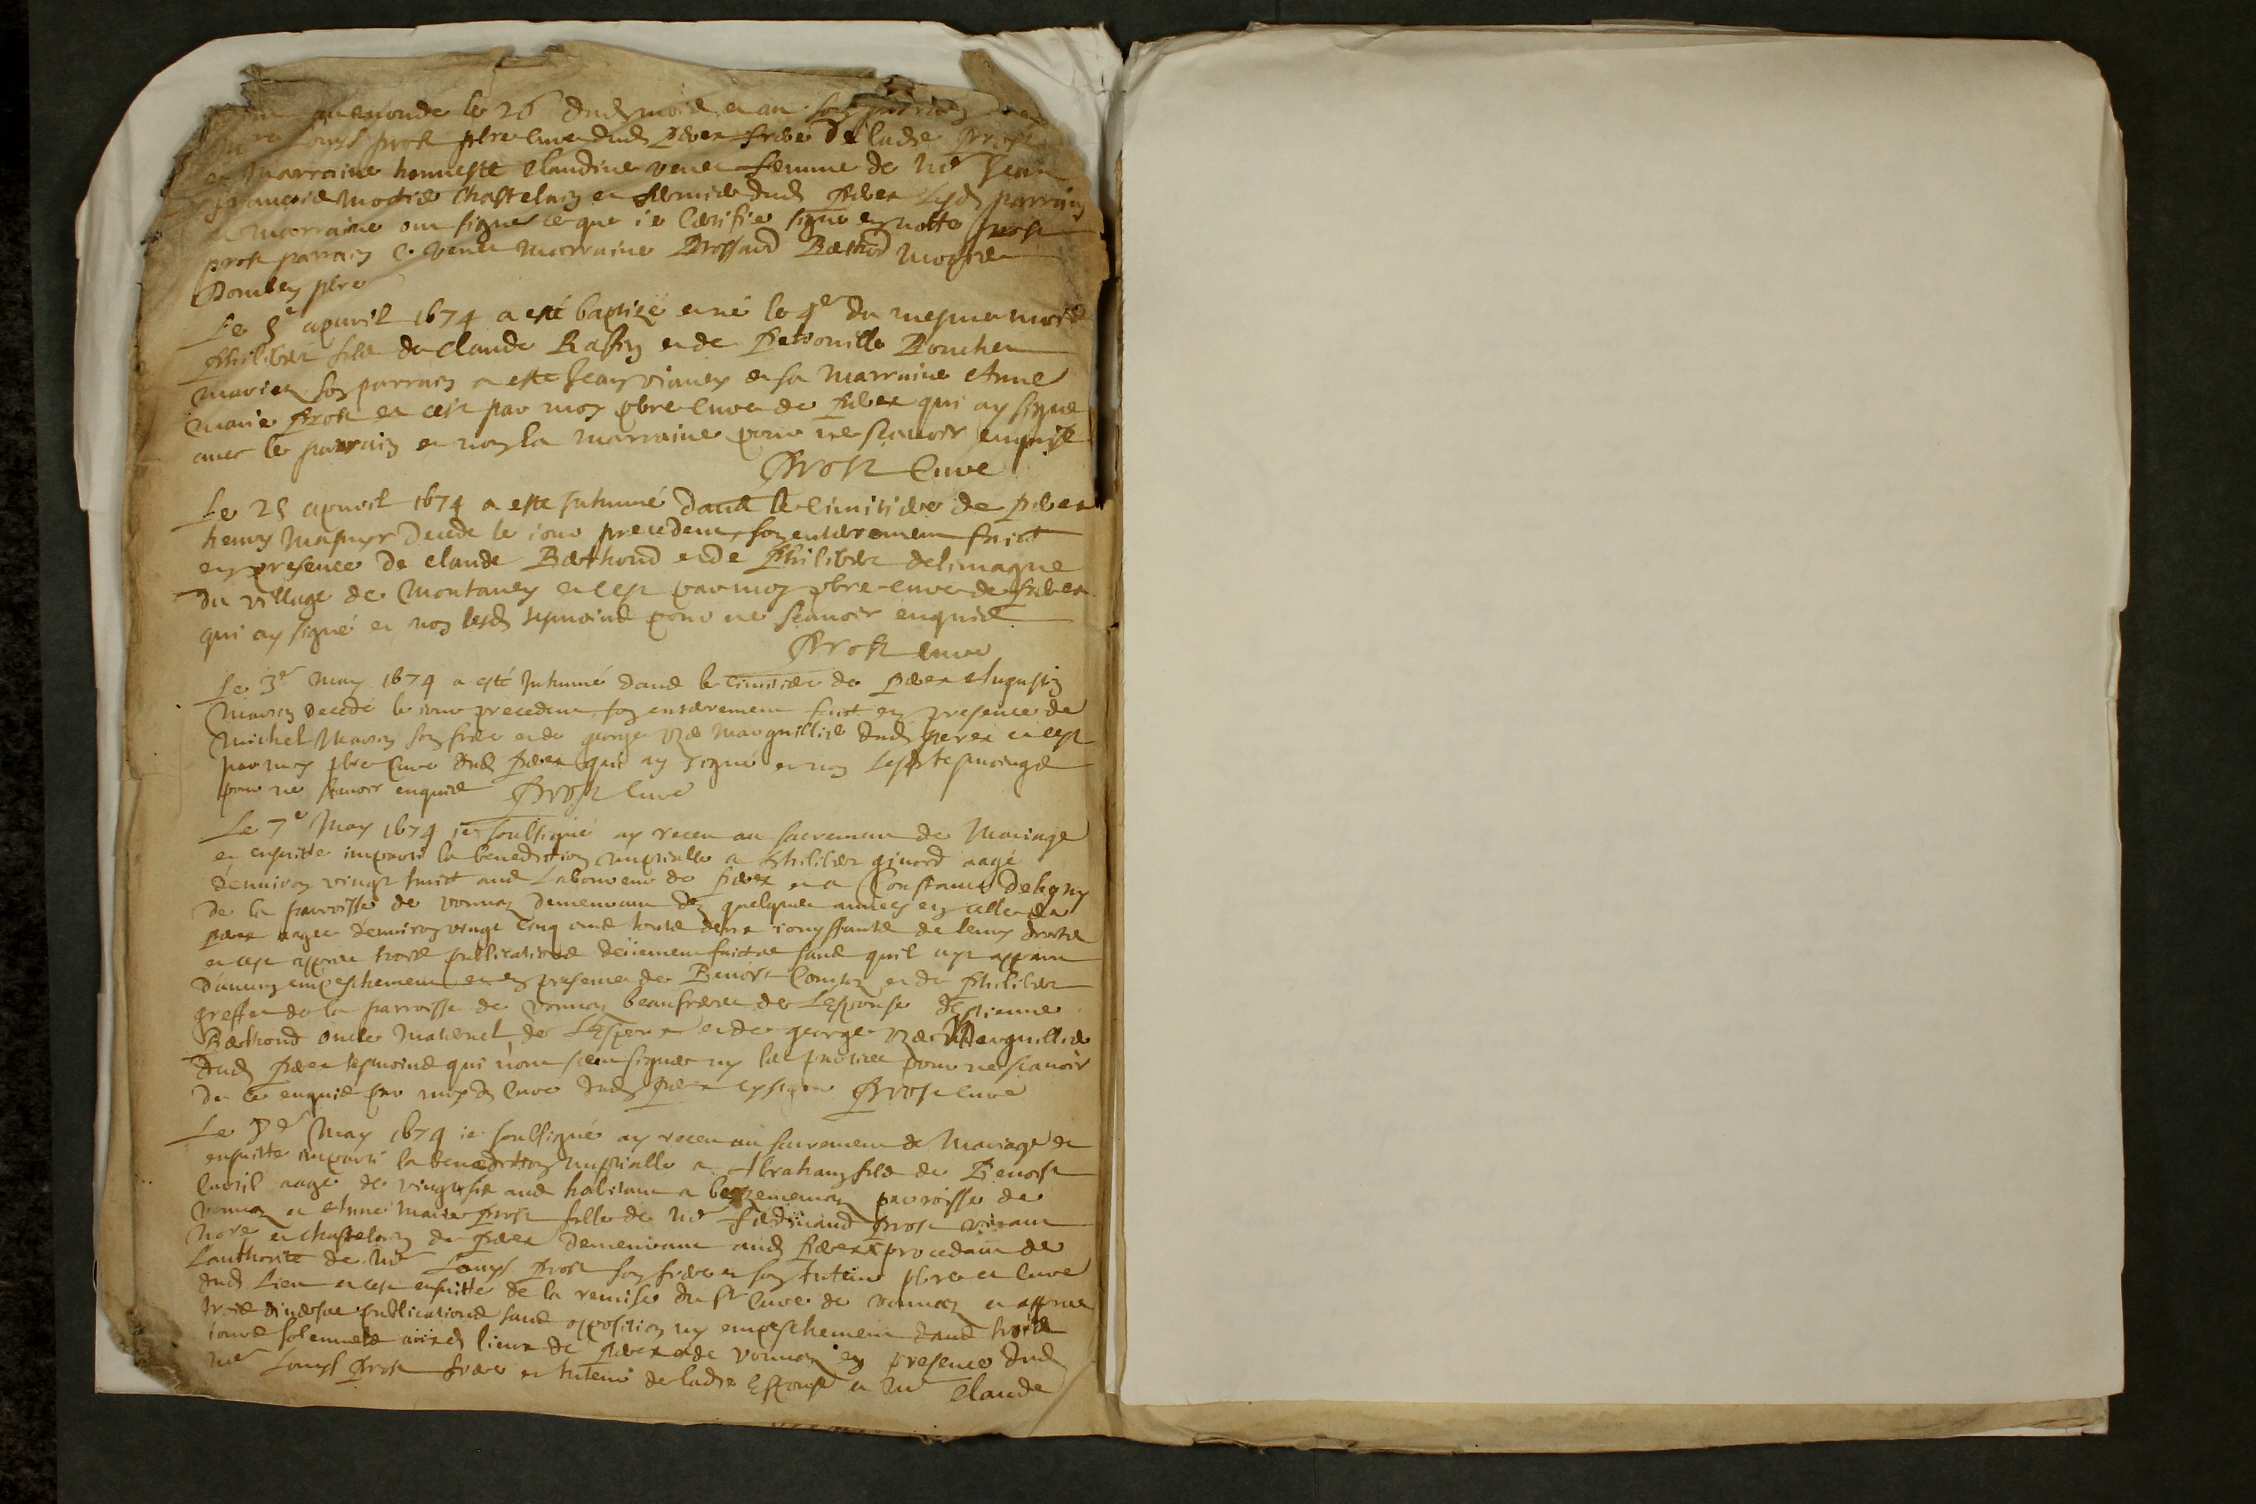 au monde le 26 dud mois et an son parrain
Louys prost pbre cure dud perex frere de ladte prost
et marraine honneste Claudine venet femme de Mre Jean
francois mostier Chastelain et fermier dud perex Lesd parrain
et marraine ont signer ce que ie Certifie signe en notte prost
prost parrain C. venet marraine Brossard Berthod mostier
Dombey pbre
Le 5e apuril 1674 a esté baptizé et né le 4e du mesme mois
philibert fils de Claude Raffin et de petronille Boucher
mariez son parrain a este Jean vianey et sa marraine Anne
marie prost et cest par moy pbre cure de perex qui ay signé
avec le parrain et non la marraine pour ne scauoir enquise
Prost Cure
Le 25 apuril 1674 a este Inhumé dans le Cimitiere de perex
henry decede le iour precedent son enterrement faict
en presence de Claude Berthoud et de philibert delimagne
du village de Montaney et cest par moy pbre cure de perex
qui ay signé et non lesd tesmoins pour ne scauoir enquis
Prost cure
Le 3e May 1674 a esté Inhumé dans le Cimitiere de perex Augustin
Mavon decedé le iour precedent son enterrement faict en presence de
Michel Mavon son frere et de george marguillier dud perex et cest
par moy pbre Cure dud perex qui ay signé et non lesd tesmoings
pour ne scauoir enquis Prost Cure
Le 7e May 1674 ie soulsigné ay receu au sacrement de Mariage
et ensuitte imparti la benediction nuptialle a philibert aagé
d'enuiron vingt huict ans Laboureur de perex et a Constance
de la parroisse de vonnaz demeurant dez quelques annees en celle de
perex aagee d'enuiron vingt Cinq ans touts deux iouyssants de leurs droits
et cest apres trois publications deüement faictes sans quil ayt apparu
d'aucun empeschement et en presence de Benoist et de philibert
greffet de la parroisse de vonnaz beaufrere de Lespouse Estienne
Berthoud oncle Maternel de L'Espoux et de george Marguillier
dud perex tesmoins qui n'ont sceu signer ny les parties pour ne scauoir
de ce enquis par moyd Cure dud perex Prost cure
Le May 1674 ie soulsigné ay receu au sacrement de Mariage et
ensuitte imparti la benediction nuptialle a Abraham fils de Benoist
Cuvil aagé de vingt six ans habitant a parroisse de
vonnaz et Anne Marie prost fille de Mre ferdinand prost viuant
Nore et chastelain de perex demeurant aud perex procedant de
Lauthorite de Mre Louys prost son frere et son tuteur pbre et Cure
dud Lieu et cest ensuitte de la remise du Sr Cure de vonnaz et apres
trois diuerses publications sans opposition ny empeschement dans trois
iours solemnels lieux de perex et de vonnaz en presence dud
Mre Louys prost frere et tuteur de ladte Espouse et Mre Claude